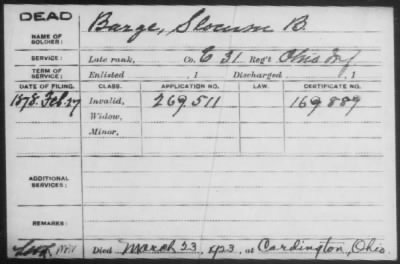 DEAD
NAME OF SOLDIER: Barge, Slocum B.
SERVICE: Late rank, Co. E 31 Reg't Ohio Inf
TERM OF SERVICE: Enlisted , 1 Discharged , 1
DATE OF FILING. CLASS. APPLICATION NO. LAW. CERTIFICATE NO.
1878. Feb. 27 Invalid, 269.511 169.889
Widow,
Minor,
ADDITIONAL SERVICES:
REMARKS:
Died March 23, 1923, at Cardington, Ohio